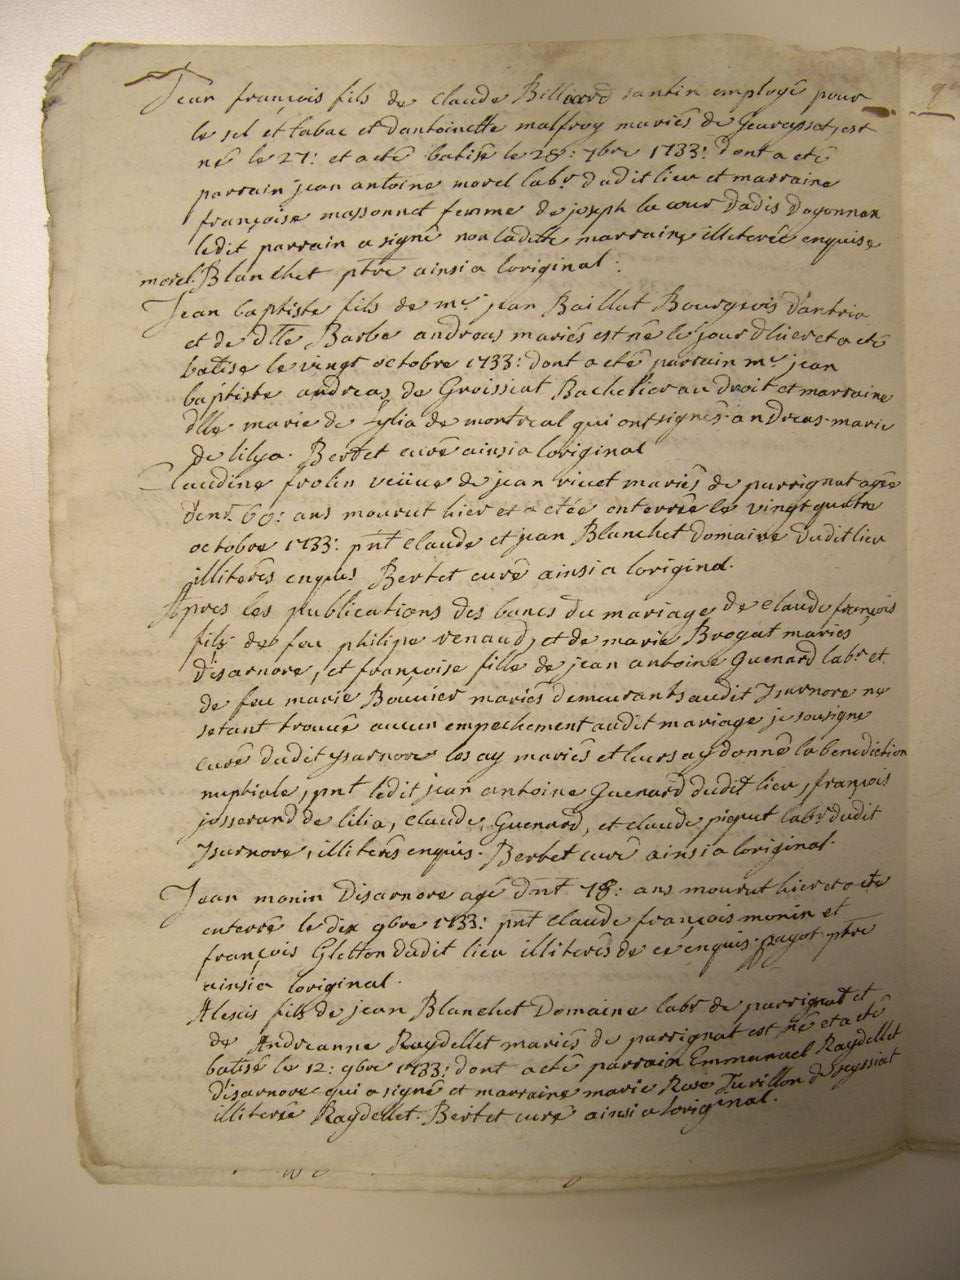 Jean françois fils de claude Billiard santin employé pour
le sel et tabac et dantoinette malfroy mariés de Geurassat, est
né le 27: et a eté batisé le 28: 7bre 1733: dont a eté
parrain jean antoine morel labr dudit lieu et marraine
françoise massonnet femme de joseph la cour dadis Doyonnax
ledit parrain a signé non ladette marraine illiterée enquise
morel. Blanchet ptre ainsi a loriginal.
Jean baptiste fils de mr jean Baillat Bourgeois d'antria
et de dlle Barbe andreas mariés est né le jour d'hier et a eté
batisé le vingt octobre 1733: dont a eté parrain mr jean
baptiste andreas de Groissiat Bachelier au droit et marraine
dlle marie de Lylia de montreal qui ont signés. andreas. marie
de lilya. Bertet curé ainsi a loriginal
Claudine frolin veiiue de jean ricet mariés de parrignat agée
denv. 60: ans mourut hier et a etée enterrée le vingt quatre
octobre 1733: pnt claude et jean Blanchet Domaine dudit lieu
illiterés enquis Bertet curé ainsi a loriginal.
Apres les publications des bancs du mariage de claude françois
fils de feu philipe renaud, et de marie Brogat mariés
disarnore, et françoise fille de jean antoine Guenard labr et
de feu marie Bouvier mariés demeurants audit Isarnore ne
setant trouvé aucun empechement audit mariage je sousigne
curé dudit ysarnore les ay mariés et leurs ay donné la benediction
nuptiale, pnt ledit jean antoine Guenard dudit lieu, françois
josserand de lilia, claude Guenard, et claude piquet labrs dudit
Isarnore, illiterés enquis. Bertet curé ainsi a loriginal.
Jean monin Disarnore agé dnt 78: ans mourut hier et a eté
enterré le dix 9bre 1733: pnt claude françois monin et
françois Gletton dudit lieu illiterés de ce enquis. payot ptre
ainsi a loriginal.
Alexis fils de jean Blanchet Domaine labr de parrignat et
de Andréanne Raydellet mariés de parrignat est né et a eté
batisé le 12: 9bre 1733: dont a eté parrain Emmanuel Raydellet
Disarnore qui a signé et marraine marie Rose Turillon de veyssiat
illiterée Raydellet. Bertet curé ainsi a loriginal.